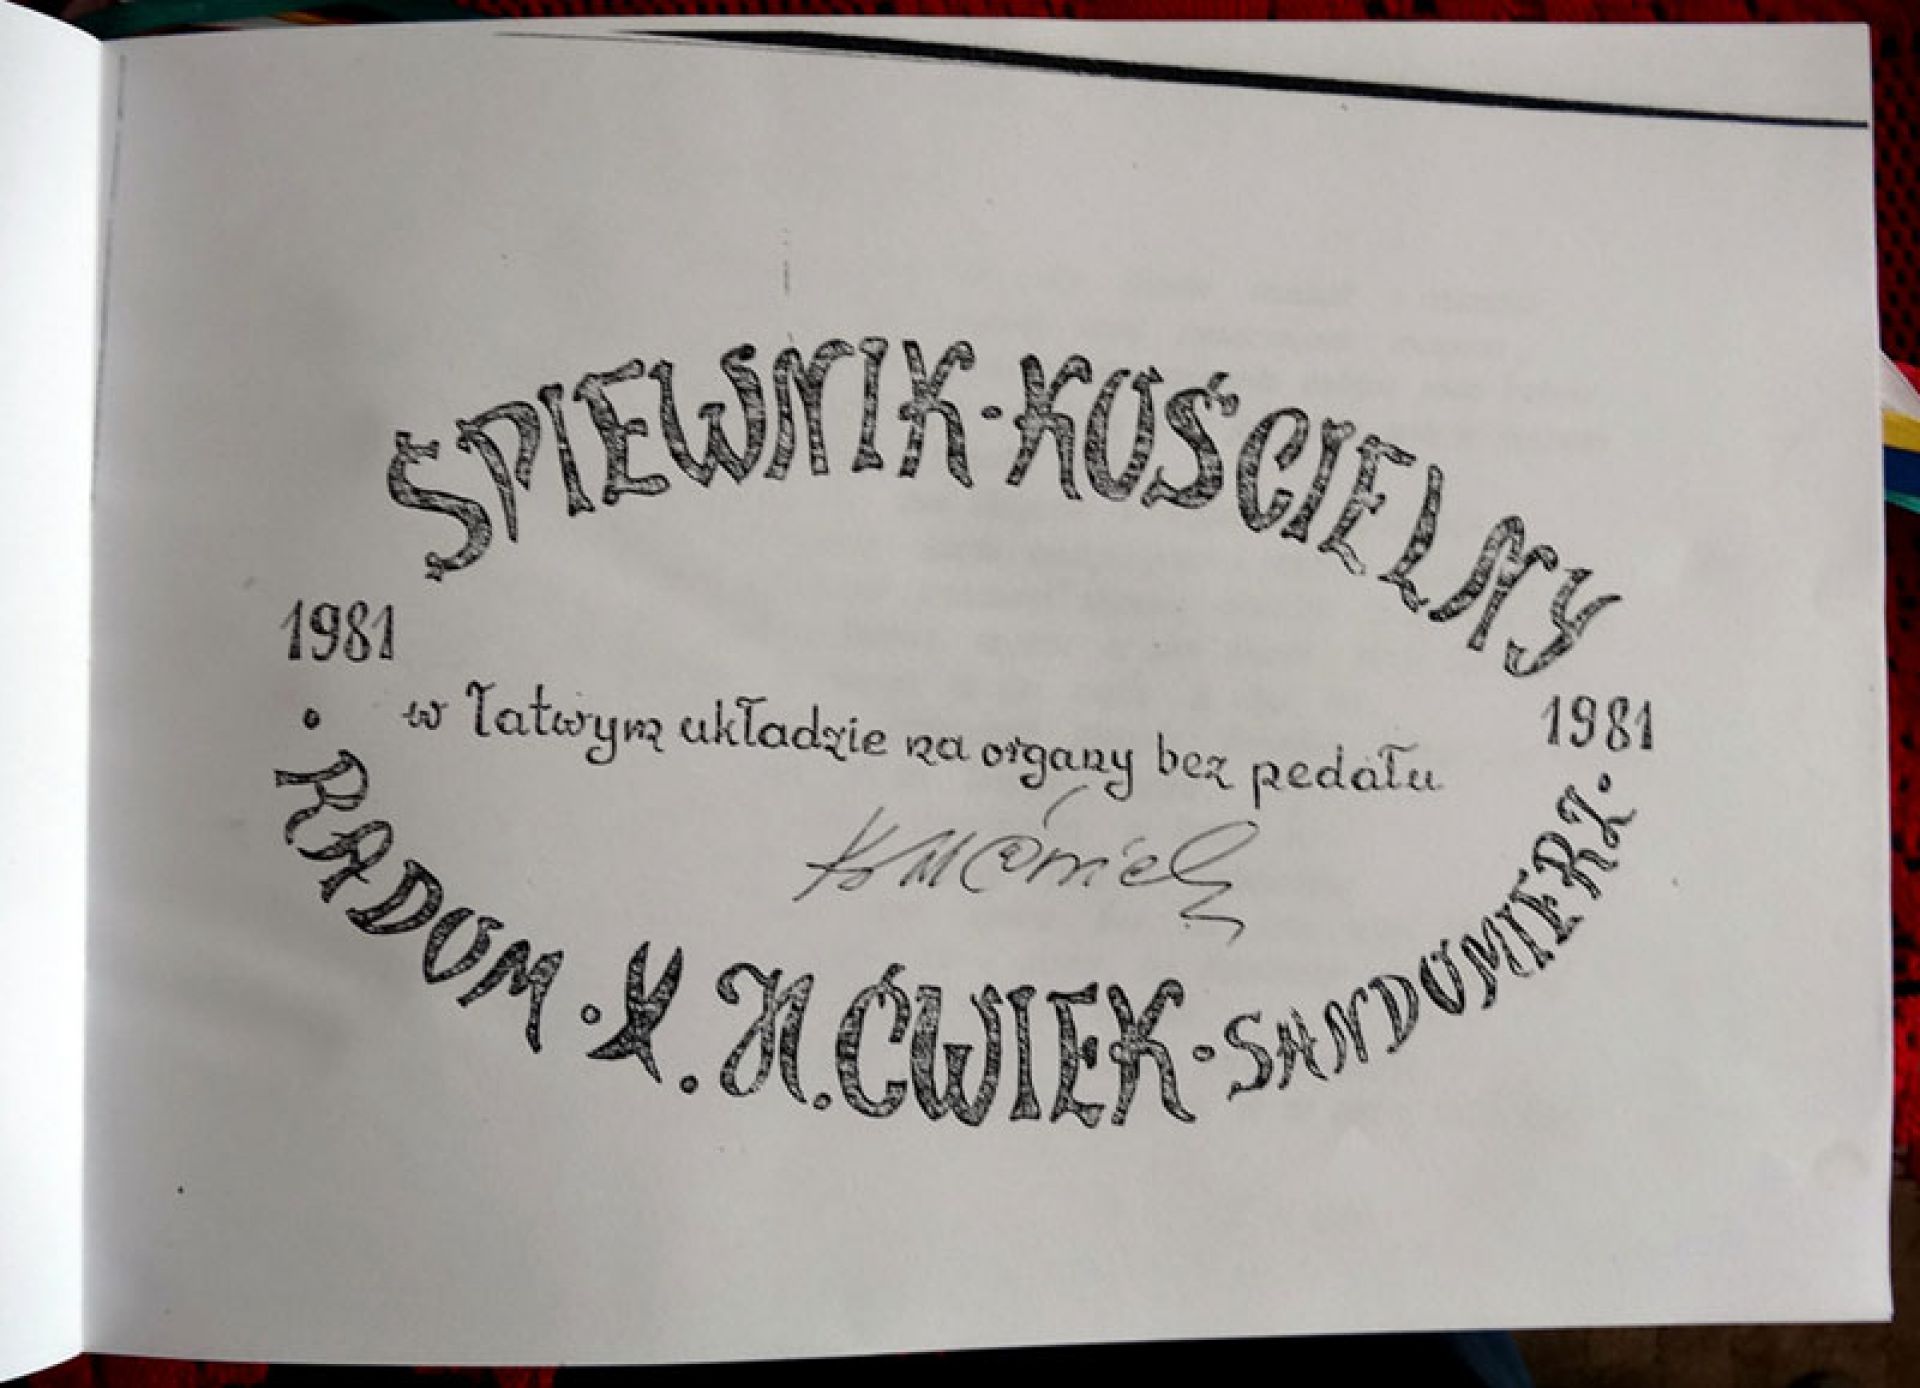 ŚPIEWNIK · KOŚCIELNY
1981
1981
w łatwym układzie na organy bez pedału
· RADOM · X. H. ĆWIEK · SANDOMIERZ ·